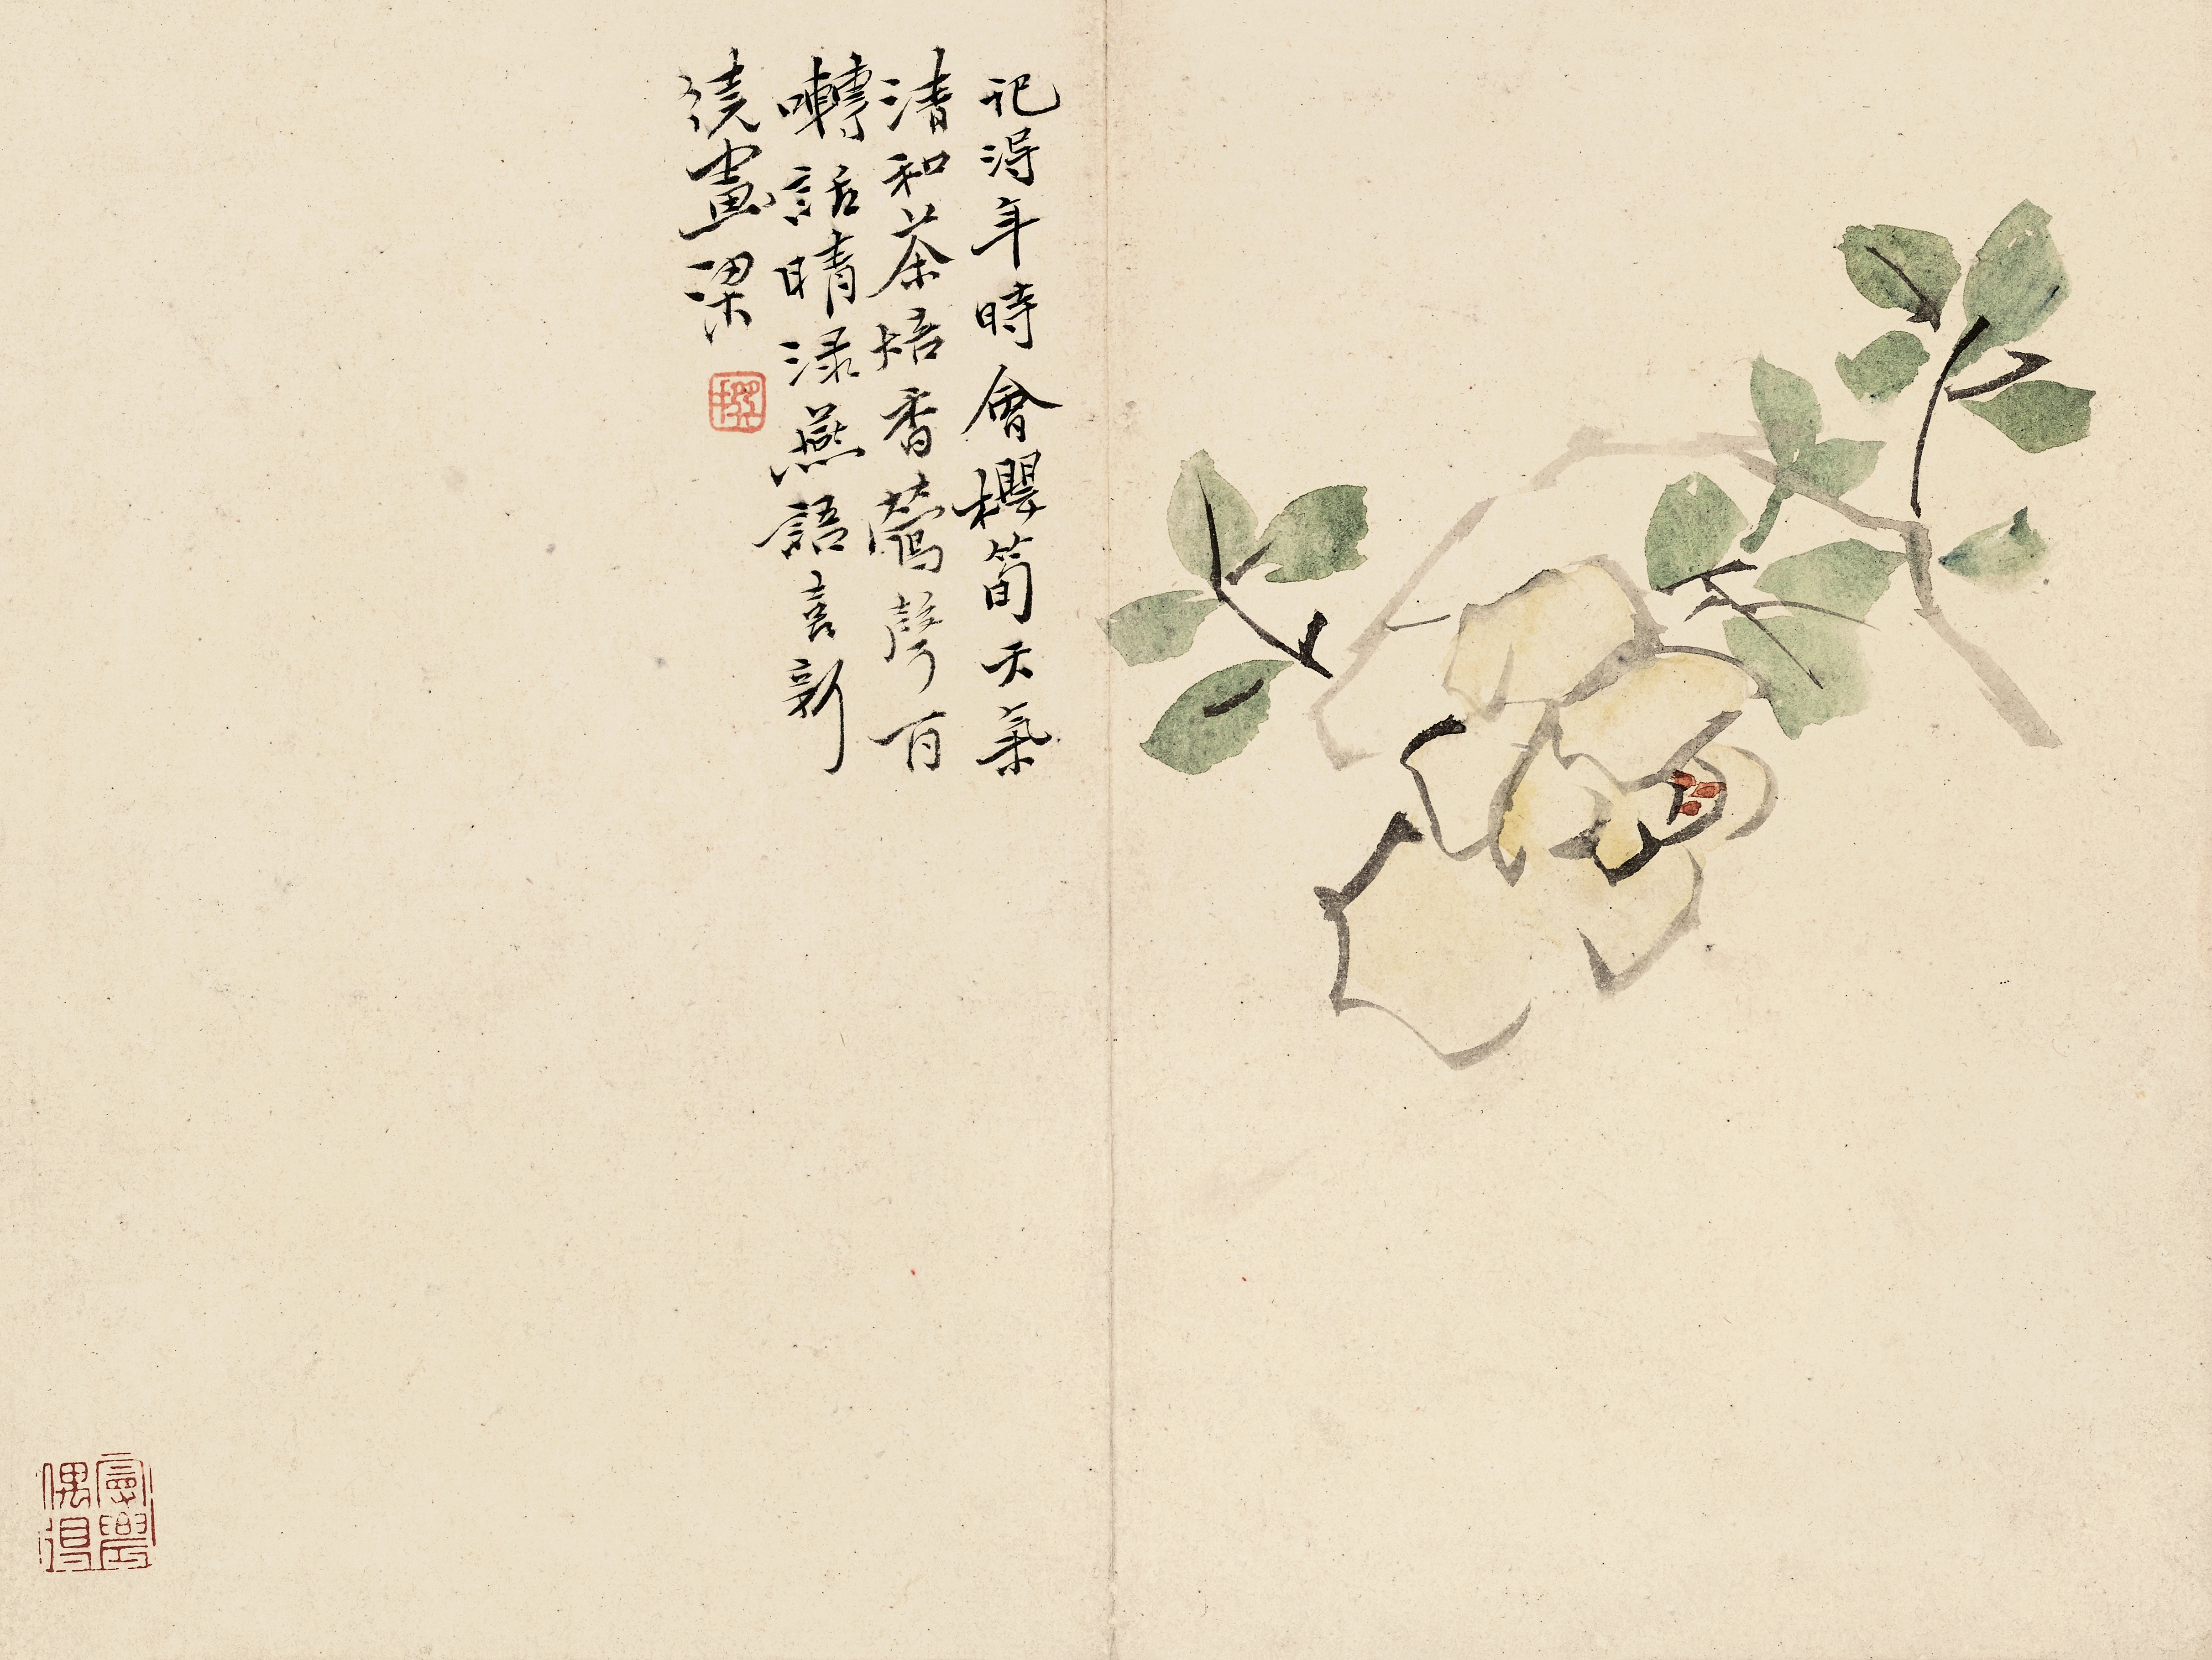 記得年時會櫻筍天氣
清和茶焙香鶯聲百
囀話晴渌燕語喜新
繞畫梁
偶得